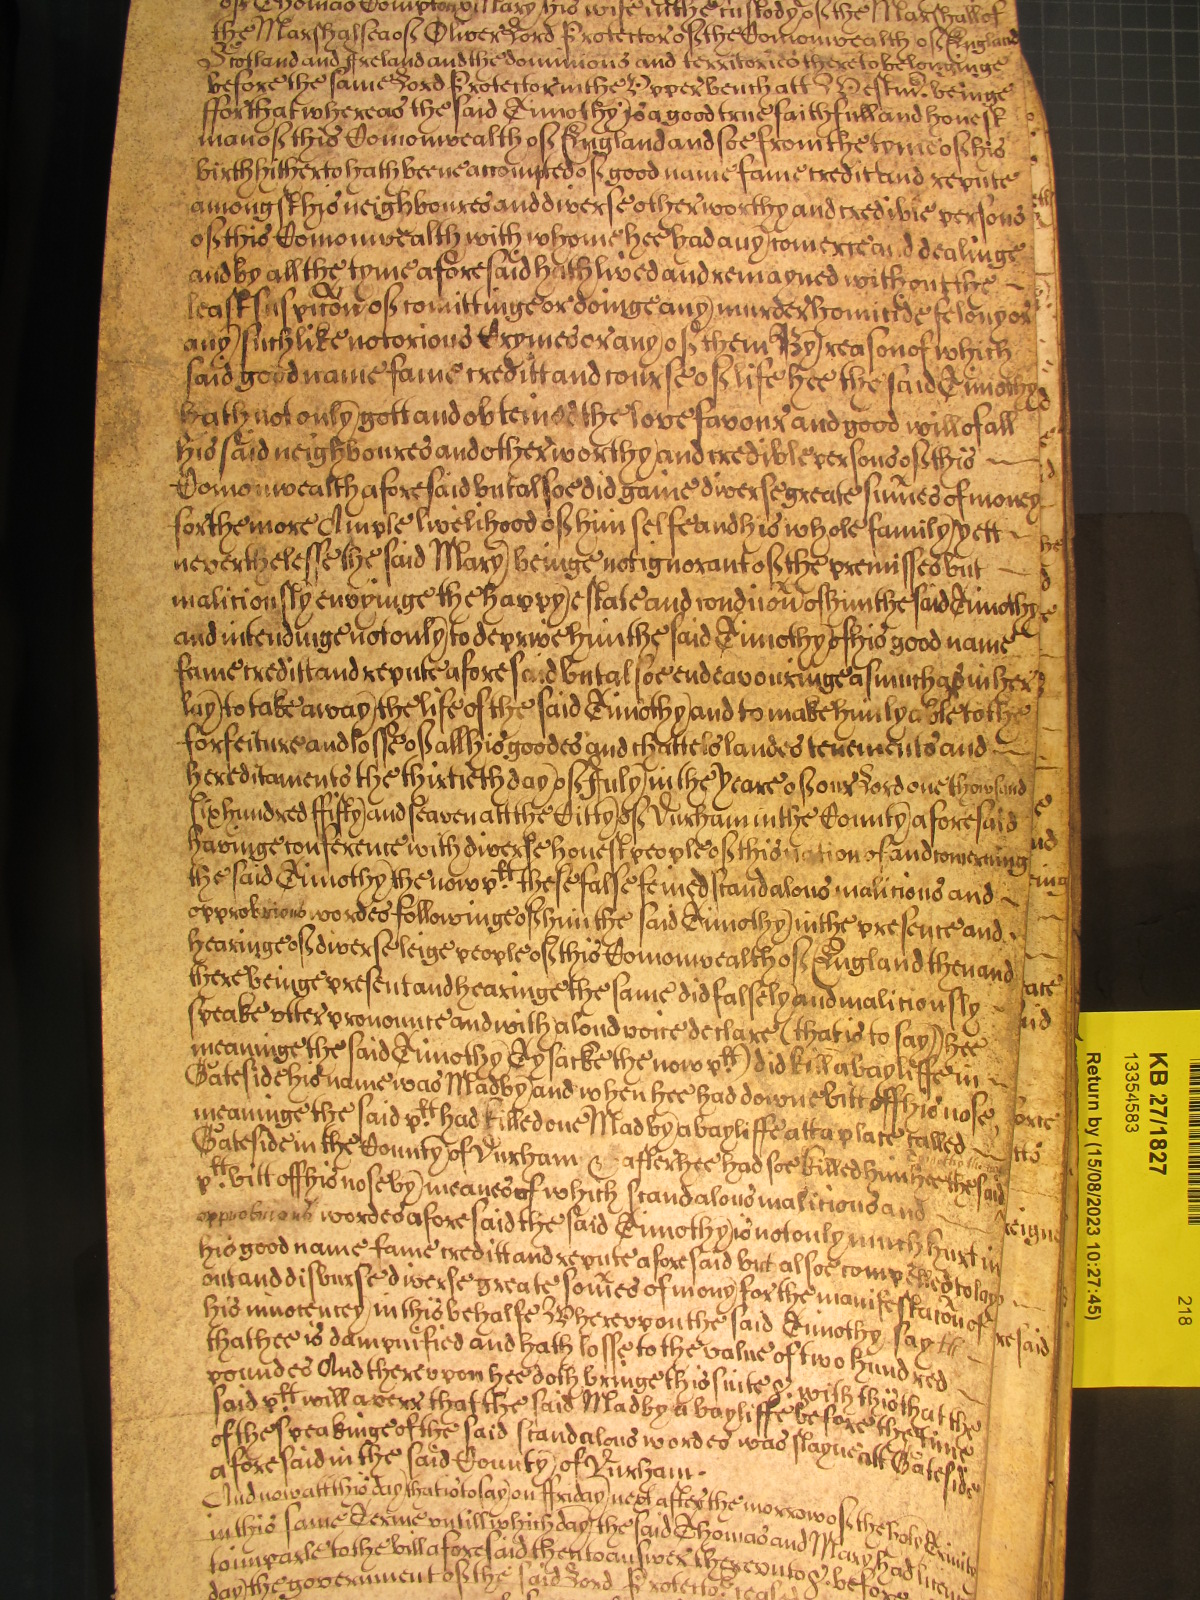 of Thomas Compton & Mary his wife in the custody of the Marshall of
the Marshalsea of Oliver Lord Protector of the Comonwealth of England
Scotland and Ireland and the dominions and territories thereto belonginge
before the same Lord Protector in the Upper bench att Westm. beinge
ffor that whereas the said Timothy is a good true faithfull and honest
man of this Comonwealth of England and soe from the tyme of his
birth hitherto hath beene accompted of good name fame creditt and repute
amongst his neighboures and diverse other worthy and credible persons
of this Comonwealth with whome hee had any comerce and dealinge
and by all the tyme aforesaid hath lived and remayned without the
least suspicion of comittinge or doinge any murder homicide felony or
any such like notorious Crymes or any of them By reason of which
said good name fame creditt and course of life hee the said Timothy
hath not only gott and obteined the love favour and good will of all
his said neighboures and other worthy and credible persons of this
Comonwealth aforesaid but alsoe did gaine diverse greate sumes of money
for the more Ample livelihood of himselfe and his whole family yett
neverthelesse the said Mary beinge not ignorant of the premisses but
maliciously envyinge the happy estate and condicion of him the said Timothy
and intendinge not only to deprive him the said Timothy of his good name
fame creditt and repute aforesaid but alsoe endeavouringe as much as in her
lay to take away the life of the said Timothy and to make him lyable to the
forfeiture and losse of all his goodes and chattels landes tenements and
hereditaments the thirtieth day of July in the yeare of our Lord one thowsand
six hundred ffifty and seaven att the Citty of Durham in the County aforesaid
havinge conference with diverse honest people of this nation of and concerning
the said Timothy the now plt these false feined scandalous malicious and
opprobrious wordes followinge of him the said Timothy in the presence and
hearinge of diverse leige people of this Comonwealth of England then and
there beinge present and hearinge the same did falsely and maliciously
speake utter pronounce and with a loud voice declare (that is to say) hee
meaninge the said Timothy Tysacke the now plt) did kill a bayleffe in
Gateside his name was Madby and when hee had downe bitt off his nose,
meaninge the said plt had killed one Madby a bayliffe att a place called
Gateside in the County of Durham & after hee had soe killed him hee the said
plt bitt off his nose by meanes of which scandalous malicious and
opprobrious wordes aforesaid the said Timothy is not only much hurt in
his good name fame creditt and repute aforesaid but alsoe compelled to lay
out and disburse diverse greate somes of mony for the manifestacion of
his innocencey in this behalfe Whereupon the said Timothy sayth
that hee is dampnified and hath losse to the value of two hundred
poundes And thereupon hee doth bringe this suite &. with this that the
said plt will averr that the said Madby a bayliffe before the time
of the speakinge of the said scandalous wordes was slayne att Gateside
aforesaid in the said County of Durham.
And now att this day that is to say on ffriday next after the morrow of the holy Trinity
in this same Terme untill which day the said Thomas and Mary had licence
to imparle to the bill aforesaid then to answer thereunto &. before
day the government of the said Lord Protector
KB 27/1827
13354583
Return by (15/08/2023 10:27:45)
218